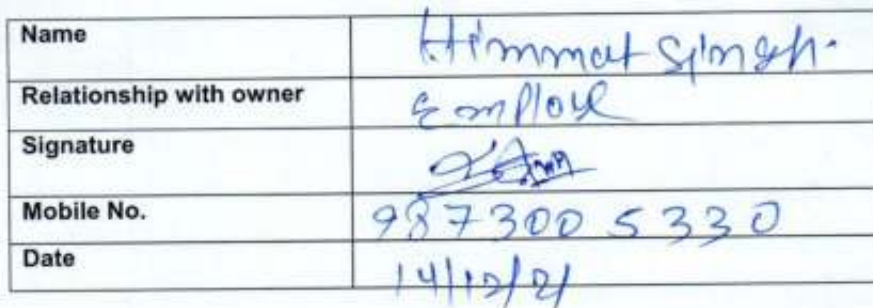 Name Himmat Singh.
Relationship with owner Employe
Signature
Mobile No. 987300 5330
Date 14/12/21